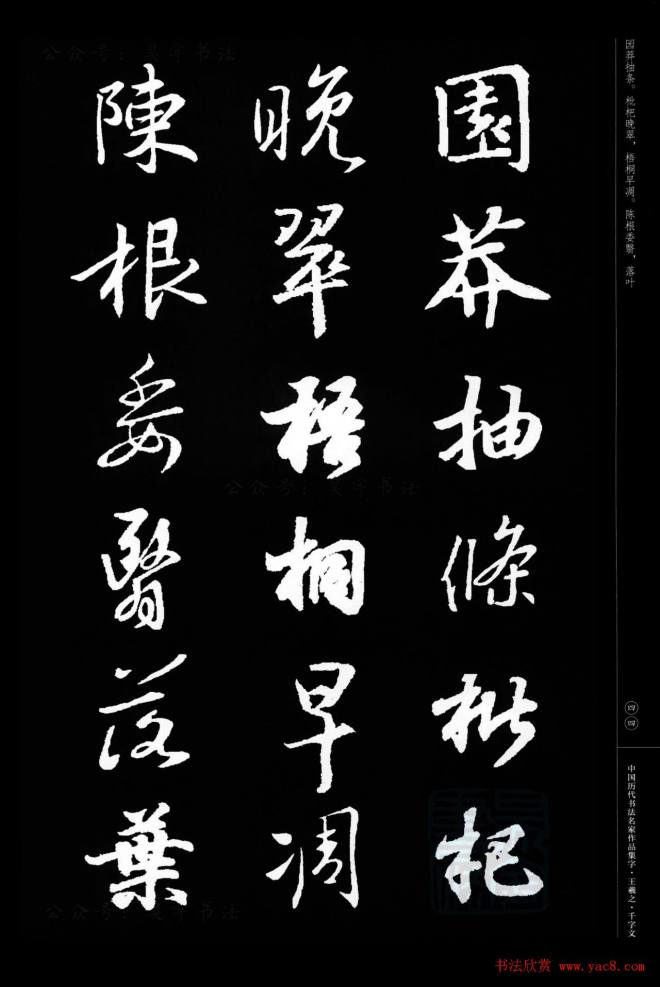 園莽抽條枇杷
晚翠梧桐早凋
陳根委翳落葉
园莽抽条。枇杷晚翠，梧桐早凋。陈根委翳，落叶
四四
中国历代书法名家作品集字·王羲之·千字文
书法欣赏 www.yac8.com